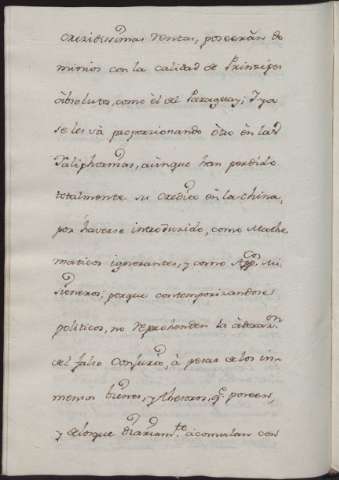 crecidissimas rentas, poseerán do
minios con la calidad de Prinzipes
absolutos, como él del Paraguay; I ya
se les và proporzionando ótro en las
Philiphinas, aúnque han perdido
totalmente su credito en la China,
por haverse introduzido, como Mathe
maticos ignorantes, y como App.cos Mi
sioneros; porque contemporizandores
politicos, no reprehenden la adorac.on
del falso Confuzio, á pesar de los in-
mensos bienes, y thesoros, q.e poseen,
y de los que diariam.te acomulan con